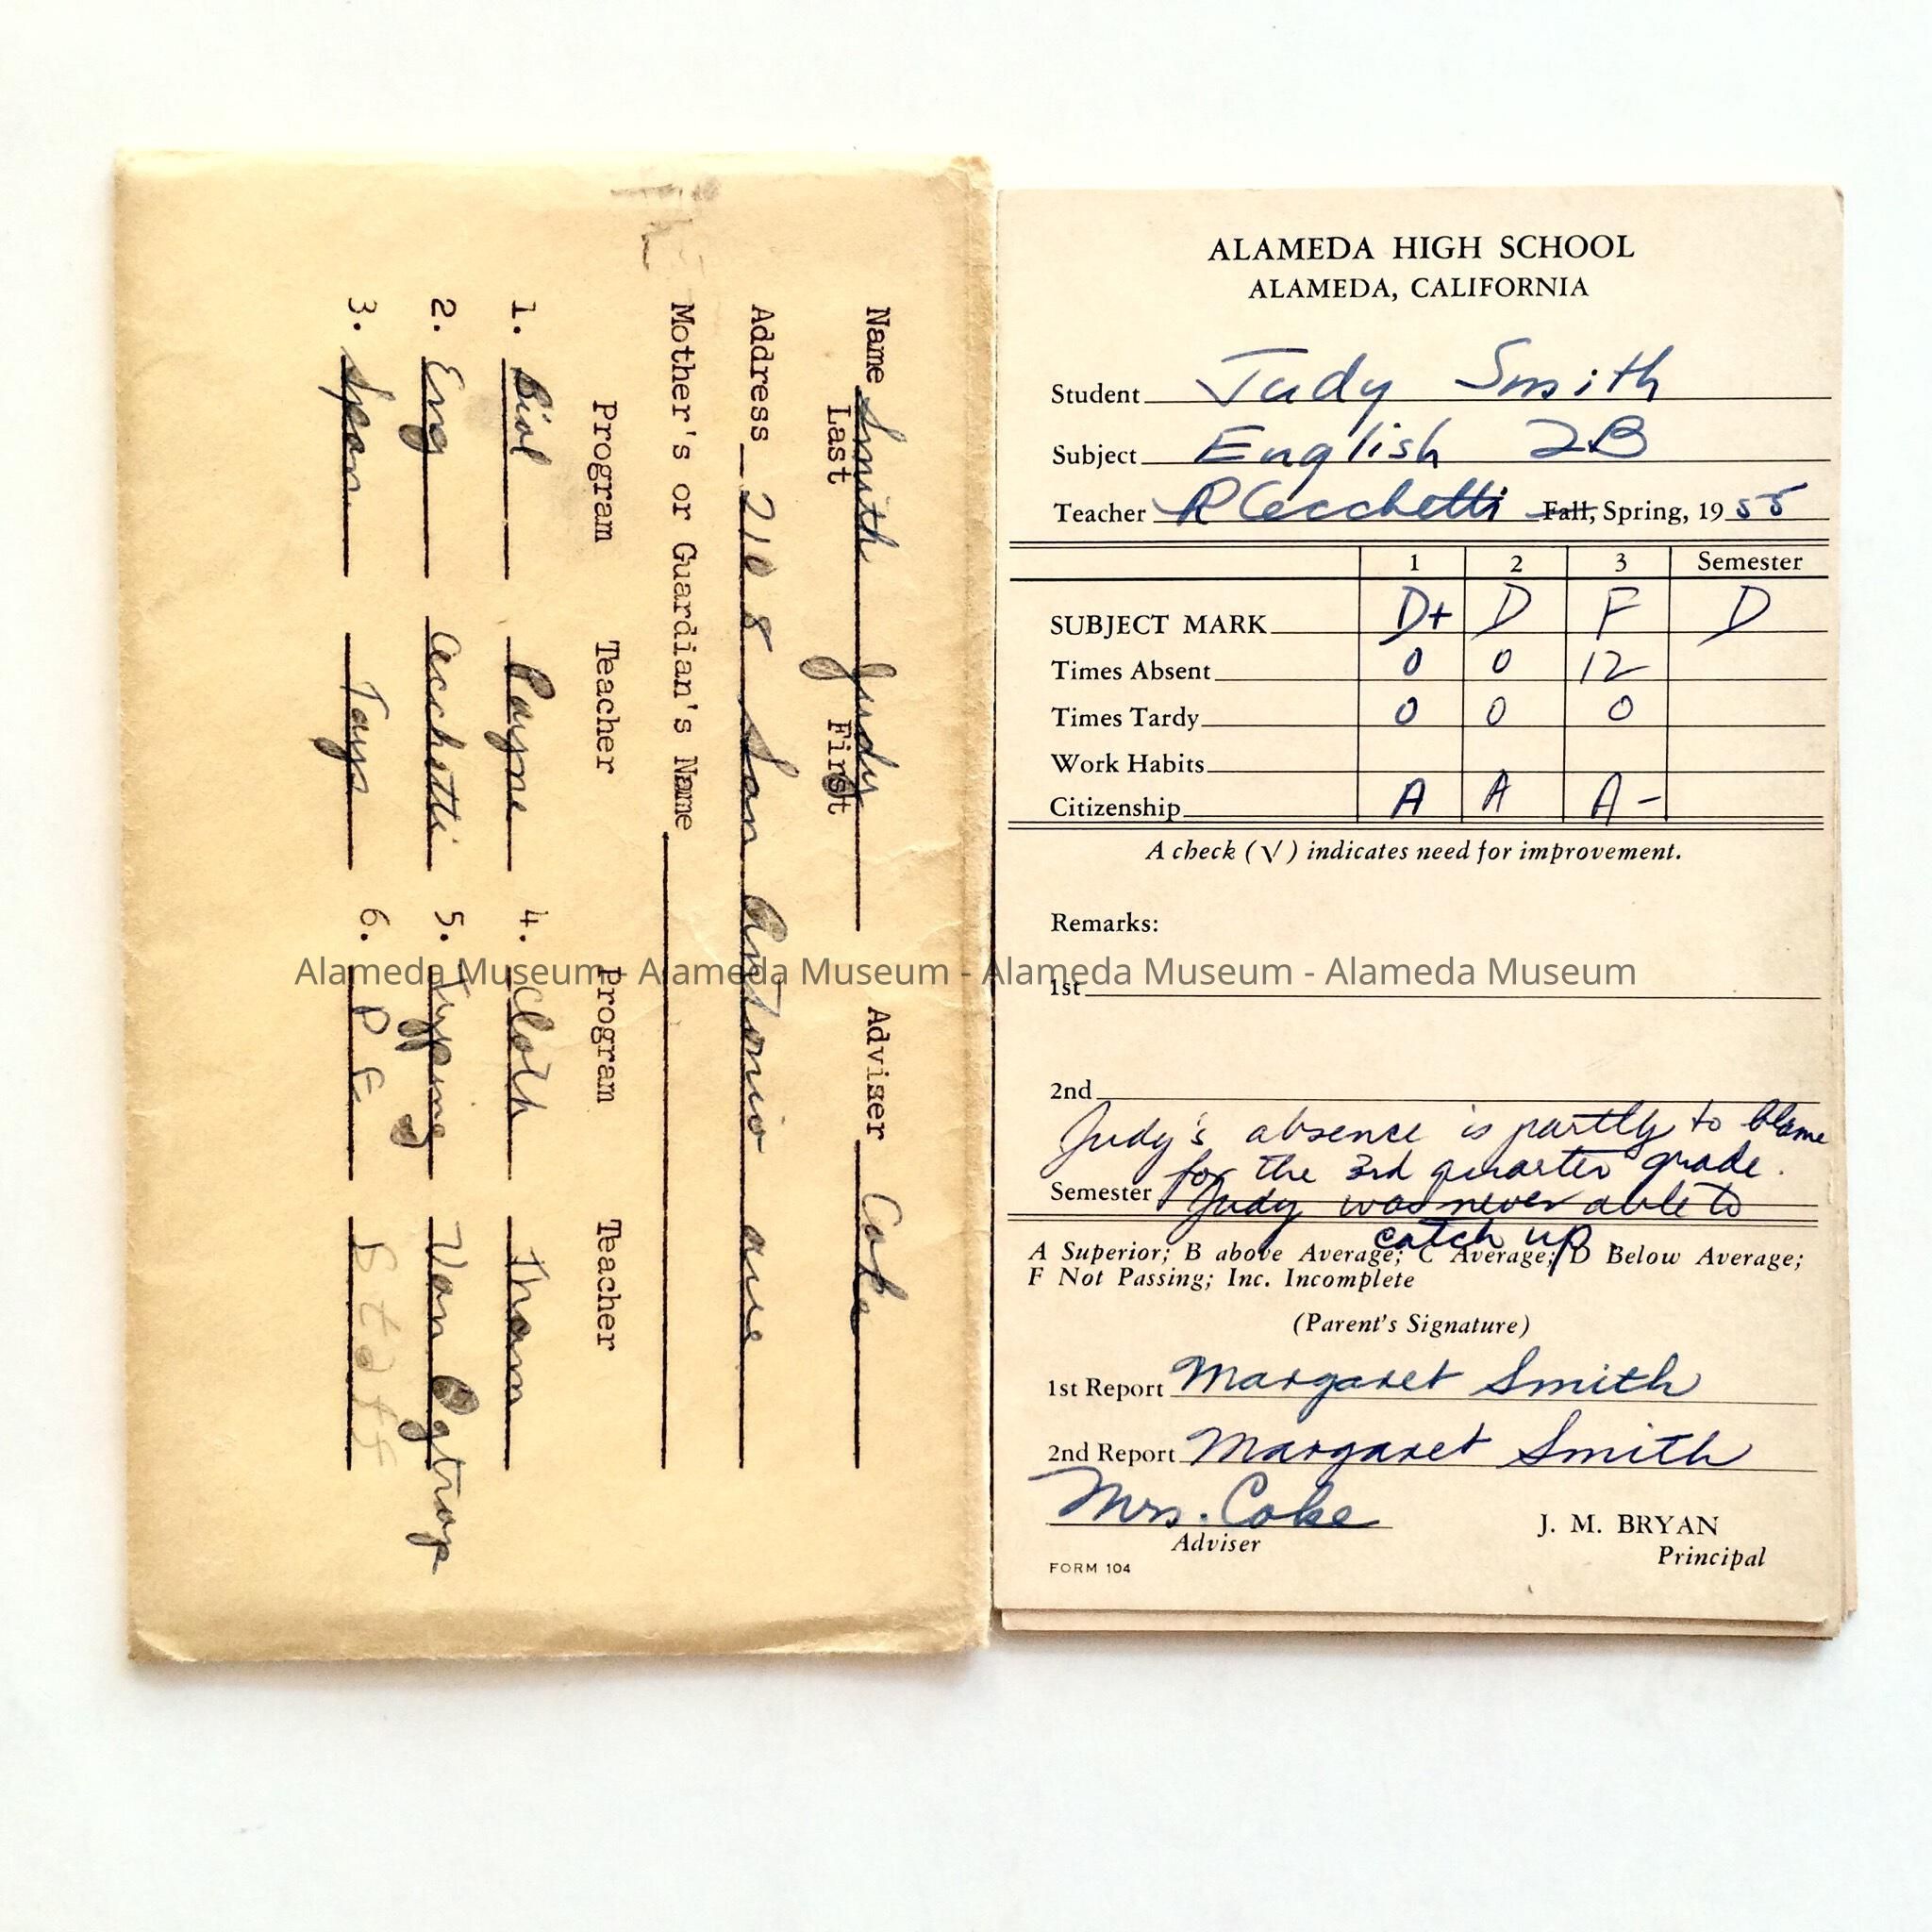 Name Smith Judy Adviser Coke
Last First
Address 2108 San Antonio ave
Mother's or Guardian's Name
Program Teacher Program Teacher
1. Biol Payne 4. Cloth Thann
2. Eng Cecchetti 5. Typing Van
3. Span Tays 6. P E Staff
ALAMEDA HIGH SCHOOL
ALAMEDA, CALIFORNIA
Student Judy Smith
Subject English 2B
Teacher R Cecchetti Fall, Spring, 1955
1 2 3 Semester
SUBJECT MARK D+ D F D
Times Absent 0 0 12
Times Tardy 0 0 0
Work Habits
Citizenship A A A-
A check (√) indicates need for improvement.
Remarks:
Alameda Museum - Alameda Museum - Alameda Museum - Alameda Museum
1st
2nd
Judy's absence is partly to blame
for the 3rd quarter grade.
Semester Judy was never able to
catch up.
A Superior; B above Average; C Average; D Below Average;
F Not Passing; Inc. Incomplete
(Parent's Signature)
1st Report Margaret Smith
2nd Report Margaret Smith
Mrs. Coke
Adviser
J. M. BRYAN
Principal
FORM 104